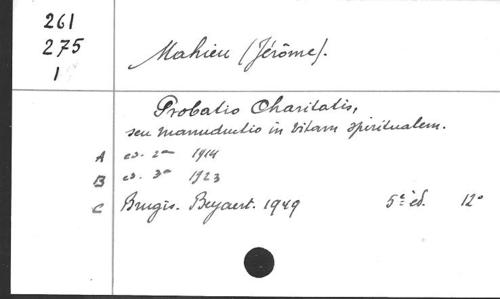 261
275
1
Mahieu (Jérôme).
Probatio Charitatis,
seu manuductio in vitam spiritualem.
A ed. 2a 1914
B ed. 3a 1923
C Brugis. Beyaert. 1949 5e éd. 12°